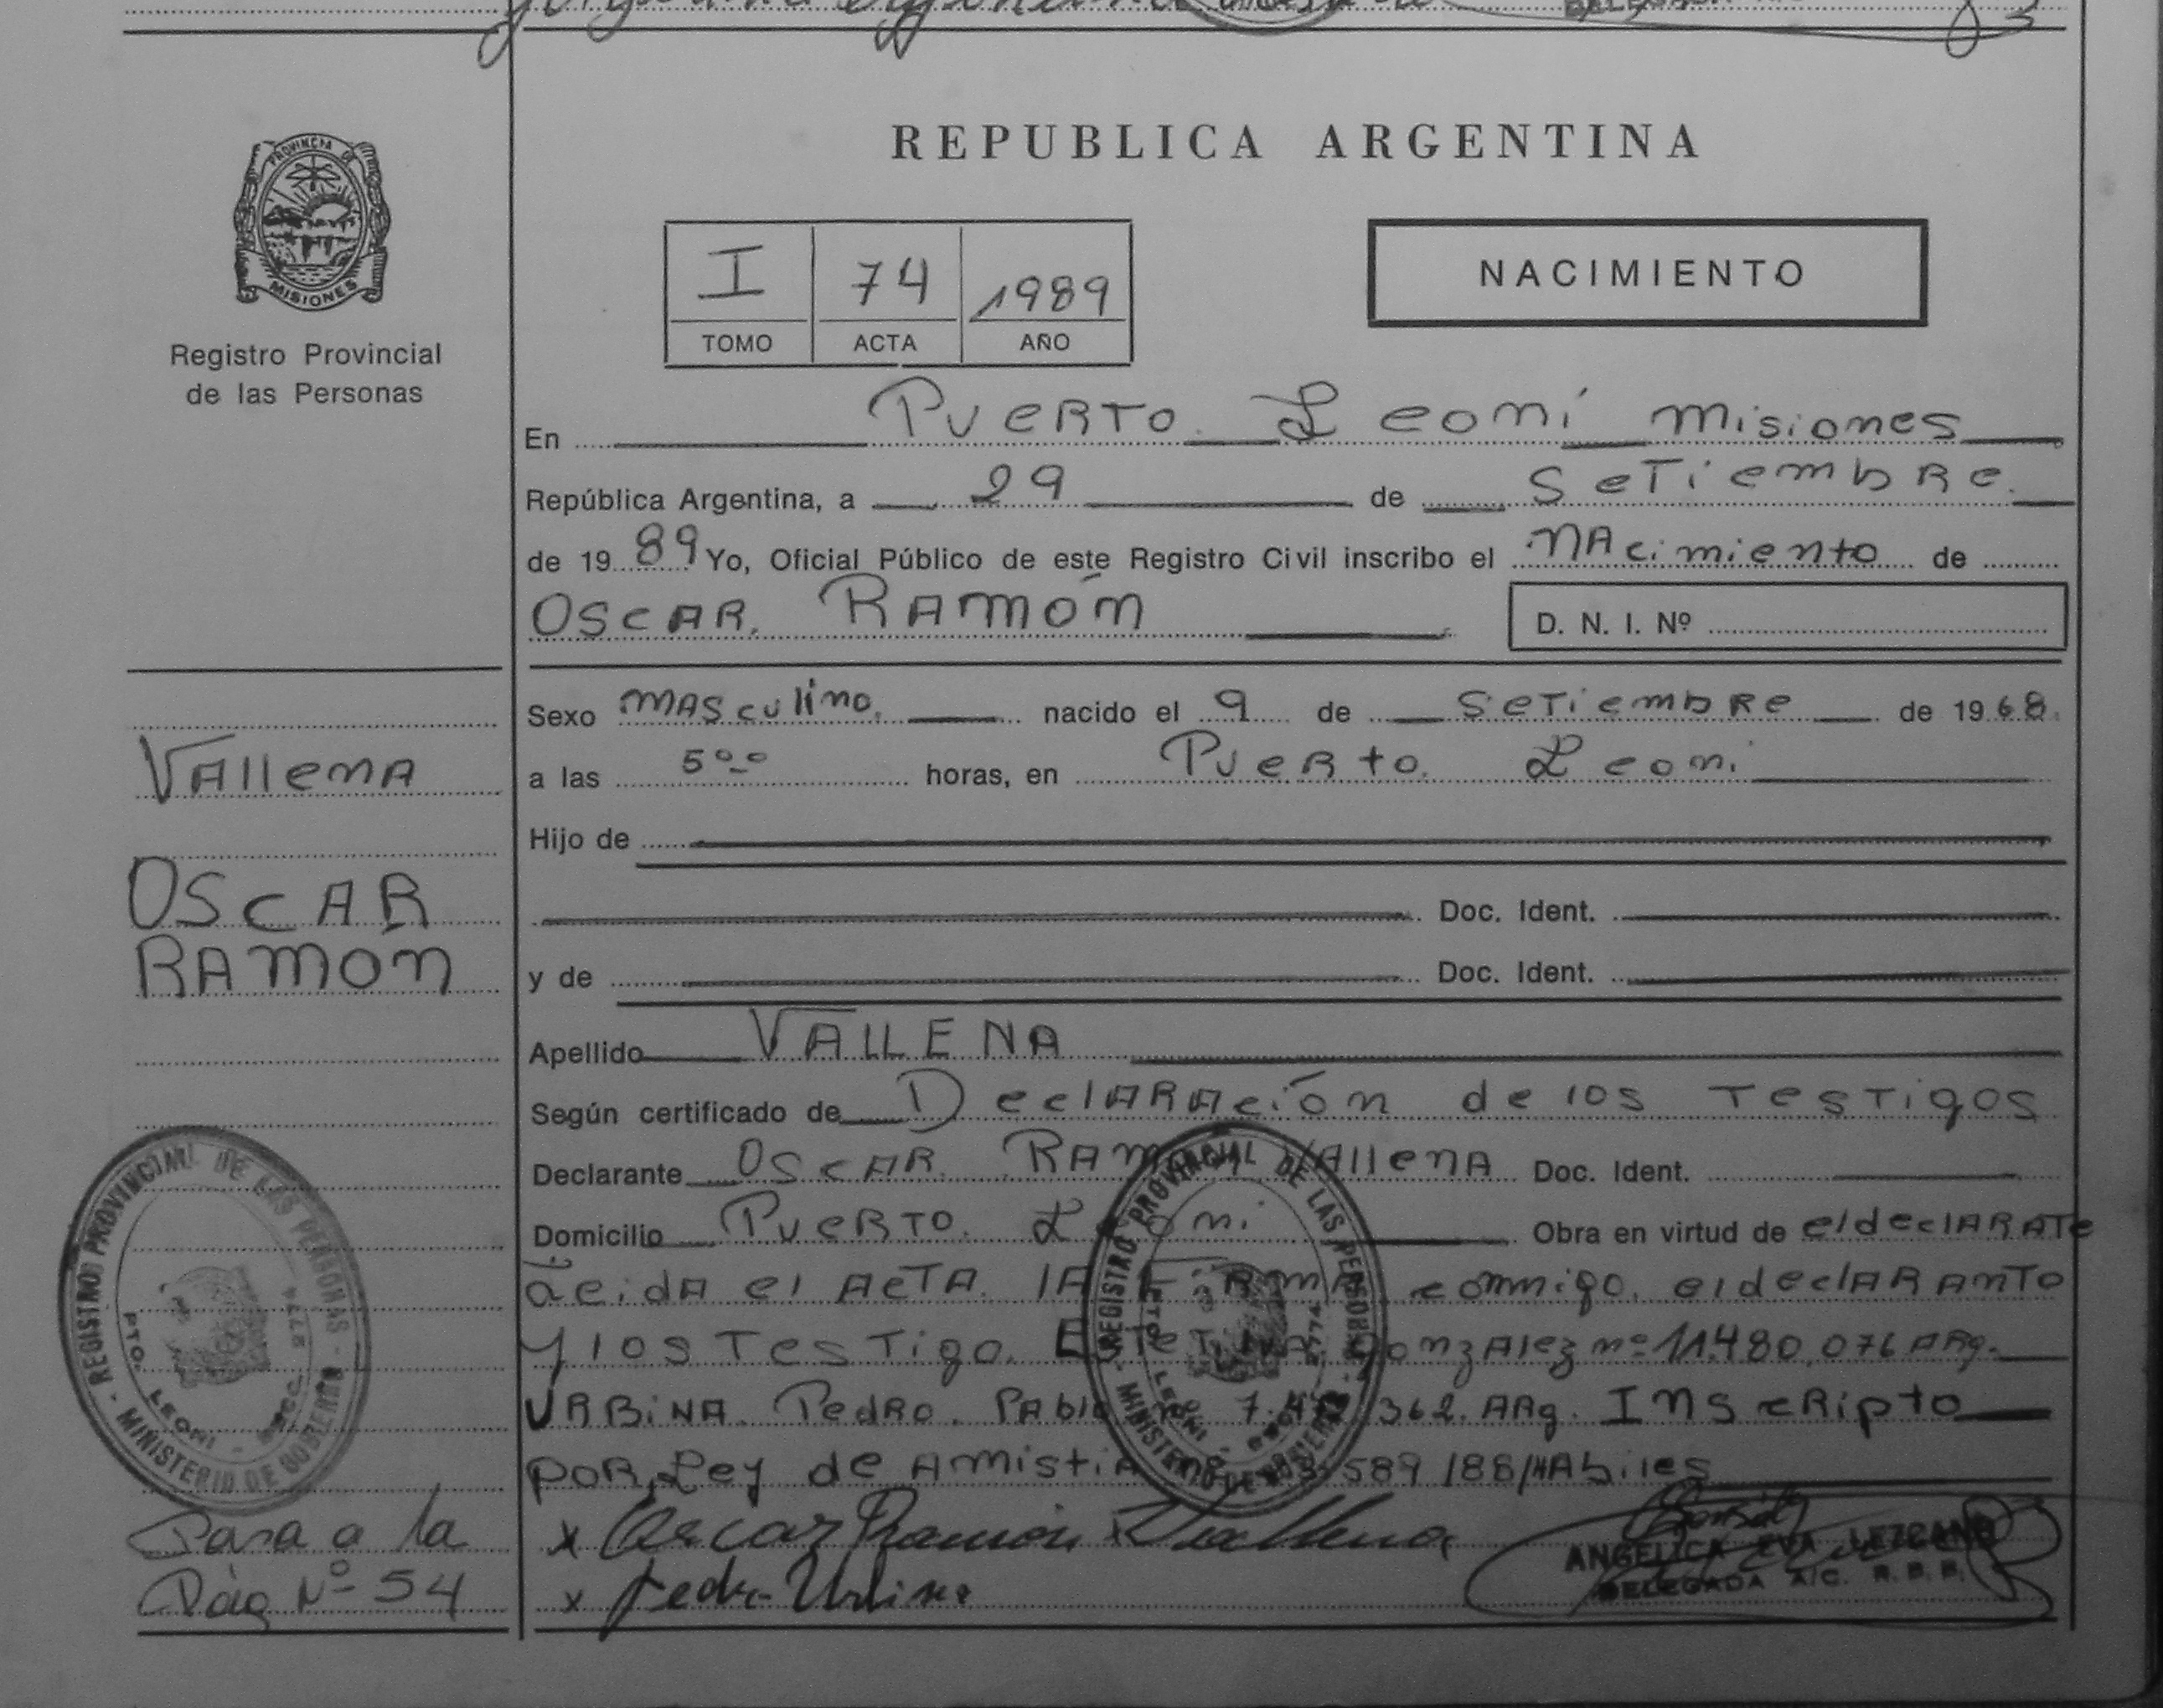 REPUBLICA ARGENTINA
PROVINCIA DE
MISIONES
Registro Provincial
de las Personas
I 74 1989
TOMO ACTA AÑO
NACIMIENTO
En PUERTO Leoní Misiones
República Argentina, a 29 de SeTiembRe
de 19 89 Yo, Oficial Público de este Registro Civil inscribo el NAcimiento de
OSCAR RAMÓN D. N. I. Nº
Sexo MAScuLino nacido el 9 de SeTiembRe de 1968
a las 5oo horas, en PueRto Leoni
Hijo de
Doc. Ident.
y de Doc. Ident.
Apellido VALLENA
Según certificado de DeclARAción de los TesTigos
Declarante OscAR RAMON VAllenA Doc. Ident.
Domicilio PueRTO Leoni Obra en virtud de el declARATe
Leida el ActA lA FiRMA conmigo el declARAnTo
y los TesTigo GonzAlez nº 11.480.076 ARg.
URBiNA PedRo PAblo 362. ARg. InscRipto
poR Ley de Amistia 589/88/HAbiles
VAllenA
OSCAR
RAMÓN
Pasa a la
Pág Nº 54
REGISTRO PROVINCIAL DE LAS PERSONAS - MINISTERIO DE GOBIERNO
PTO. LEONI - 2774
REGISTRO PROVINCIAL DE LAS PERSONAS - MINISTERIO DE GOBIERNO
x Oscar Ramón Vallena
x Pedro Urbina
ANGELICA EVA LEZCANO
DELEGADA A/C. R. P. P.